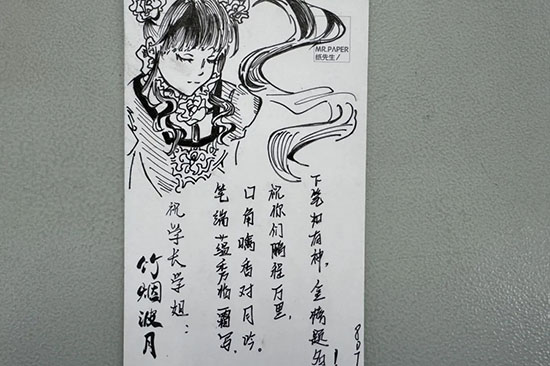 MR.PAPER
纸先生/
竹烟波月
祝学长学姐：
笔端蕴秀临霜写，
口角噙香对月吟。
祝你们鹏程万里，
下笔如有神，金榜题名！
807